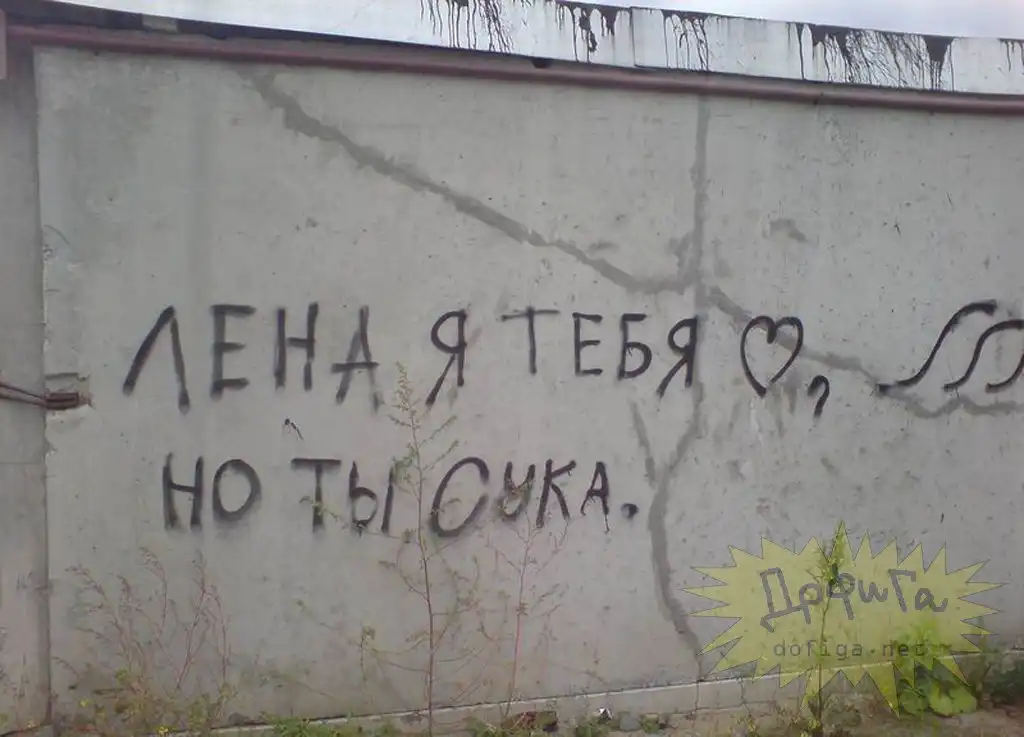 ЛЕНА Я ТЕБЯ ♡,
НО ТЫ СУКА.
ДОФиГа
dofiga.net